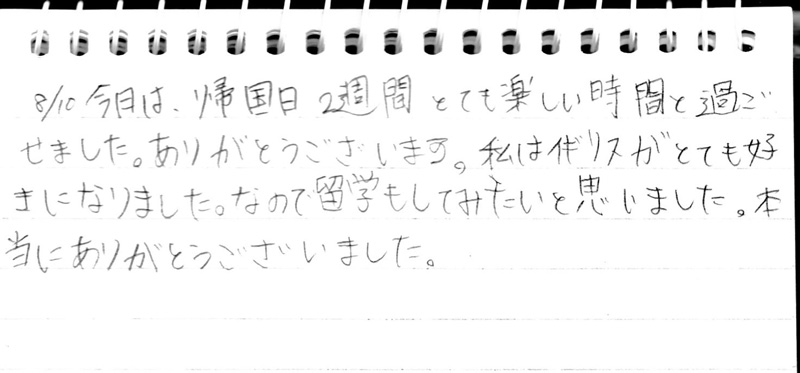 8/10 今日は、帰国日 2週間 とても楽しい時間と過ご
せました。ありがとうございます。私はイギリスがとても好
きになりました。なので留学もしてみたいと思いました。本
当にありがとうございました。